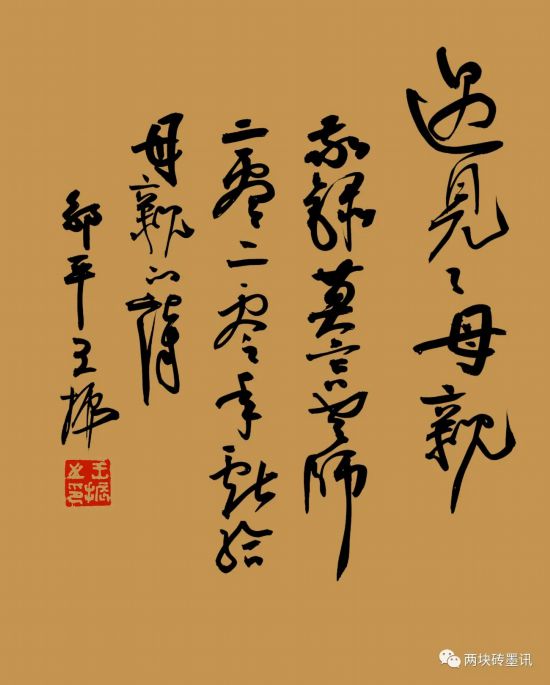 遇見了母親
敬錄莫言老師
二零二零年獻給
母親的
鄒平王振
王振之印
两块砖墨讯